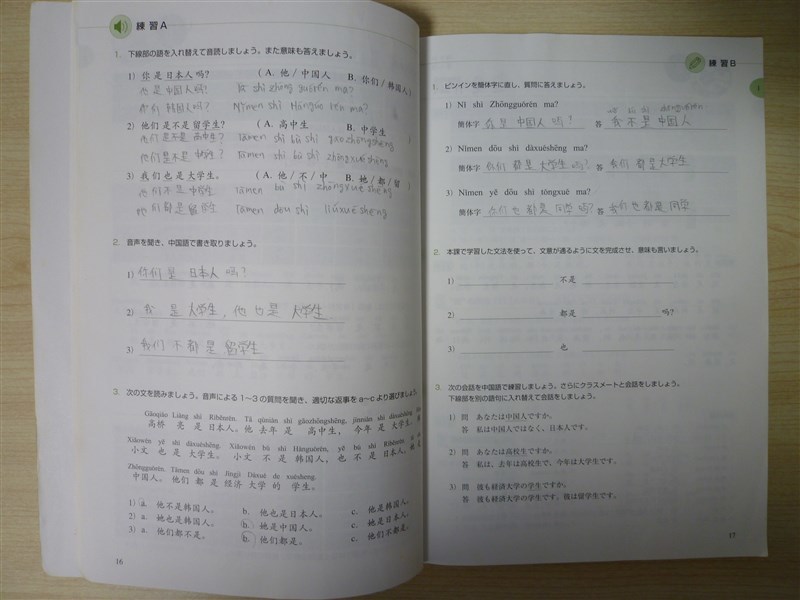 練習A
1. 下線部の語を入れ替えて音読しましょう。また意味も答えましょう。
1) 你是日本人吗? (A. 他/中国人 B. 你们/韩国人)
他是中国人吗? Tā shì zhōng guórén ma?
你们韩国人吗? Nǐmen shì Hánguó rén ma?
2) 他们是不是留学生? (A. 高中生 B. 中学生
他们是不是高中生? Tāmen shì bú shì gāozhōngshēng
他们是不是 Tāmen shì bú shì zhōngxuéshēng
3) 我们也是大学生。 (A. 他/不/中 B. 她/都/留
他们不是中学生 Tāmen bú shì zhōngxuéshēng
他们都是留学生 Tāmen dōu shì liúxuéshēng
2. 音声を聞き、中国語で書き取りましょう。
1) 你们是日本人吗?
2) 我是大学生,他也是大学生
3) 我们不都是留学生
3. 次の文を読みましょう。音声による1〜3の質問を聞き、適切な返事をa〜cより選びましょう。
Gāoqiáo Liàng shì Rìběnrén. Tā qùnián shì gāozhōngshēng, jīnnián shì dàxuéshēng
高桥 亮 是 日本人。他 去年 是 高中生, 今年 是 大学生。
Xiǎowén yě shì dàxuéshēng. Xiǎowén bú shì Hánguórén, yě bú shì Rìběnrén.
小文 也 是 大学生。 小文 不 是 韩国人, 也 不 是 日本人,
Zhōngguórén. Tāmen dōu shì Jīngjì Dàxué de xuésheng.
中国人。 他们 都 是 经济 大学 的 学生。
1) a. 他不是韩国人。 b. 他也是日本人。 c. 他是韩国人。
2) a. 她也是韩国人。 b. 她是中国人。 c. 她是日本人。
3) a. 他们都不是。 b. 他们都是。 c. 他们不都是。
16
練習B
1. ピンインを簡体字に直し、質問に答えましょう。
1) Nǐ shì Zhōngguórén ma?
簡体字 是中国人吗? 答 我不是中国人
2) Nǐmen dōu shì dàxuéshēng ma?
簡体字 你们都是大学生吗? 答 我们都是大学生
3) Nǐmen yě dōu shì tóngxué ma?
簡体字 你们也都是同学吗? 答 我们也都是同学
2. 本課で学習した文法を使って、文意が通るように文を完成させ、意味も言いましょう。
1) 不是
2) 都是 吗?
3) 也
3. 次の会話を中国語で練習しましょう。さらにクラスメートと会話をしましょう。
下線部を別の語句に入れ替えて会話をしましょう。
1) 問 あなたは中国人ですか。
答 私は中国人ではなく、日本人です。
2) 問 あなたは高校生ですか。
答 私は、去年は高校生で、今年は大学生です。
3) 問 彼も経済大学の学生ですか。
答 彼も経済大学の学生です。彼は留学生です。
17